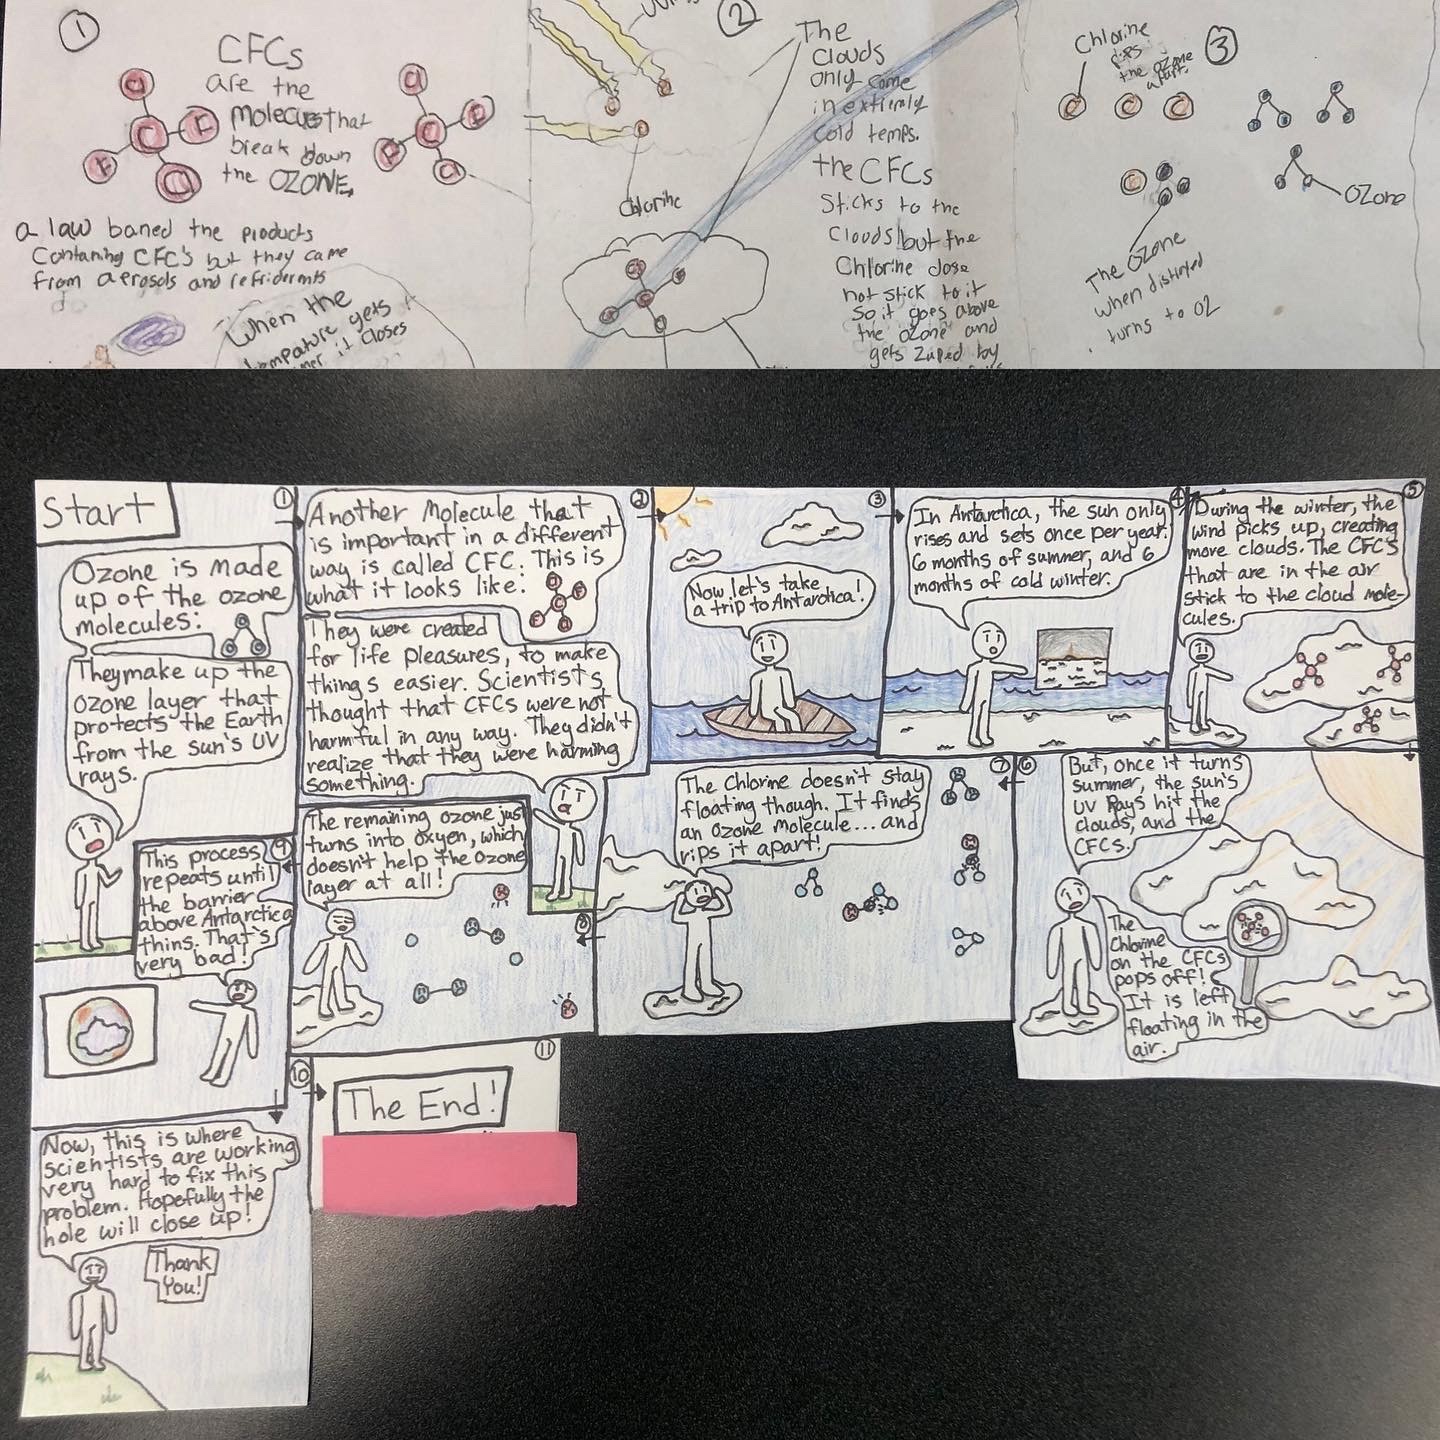 ①
CFCs
are the
molecues that
break down
the OZONE.
Cl
F
C
F
Cl
Cl
F
C
F
Cl
a law baned the products
Contaning CFC's but they came
from aerosols and refridernts
When the
tempature gets
it closes
②
The
clouds
only come
in extremly
cold temps.
the CFCs
Sticks to the
Clouds but the
Chlorine dose
not stick to it
so it goes above
the ozone and
gets Zaped by
Chlorine
③
Chlorine
rips
the ozone
apart.
C
C
C
C
Ozone
The Ozone
when distroted
turns to O2
Start
①
Ozone is made
up of the ozone
molecules:
They make up the
ozone layer that
protects the Earth
from the sun's UV
rays.
②
Another Molecule that
is important in a different
way is called CFC. This is
what it looks like:
They were created
for life pleasures, to make
things easier. Scientists
thought that CFCs were not
harmful in any way. They didn't
realize that they were harming
something.
③
Now let's take
a trip to Antarctica!
④
In Antarctica, the sun only
rises and sets once per year.
6 months of summer, and 6
months of cold winter.
⑤
During the winter, the
wind picks up, creating
more clouds. The CFC's
that are in the air
stick to the cloud mole-
cules.
⑥
But, once it turns
summer, the sun's
UV Rays hit the
clouds, and the
CFCs.
The
Chlorine
on the CFCs
pops off!
It is left
floating in the
air.
⑦
The Chlorine doesn't stay
floating though. It finds
an Ozone Molecule...and
rips it apart!
⑧
The remaining ozone just
turns into oxyen, which
doesn't help the Ozone
layer at all!
⑨
This process
repeats until
the barrier
above Antarctica
thins. That's
very bad!
⑩
Now, this is where
scientists are working
very hard to fix this
problem. Hopefully the
hole will close up!
Thank
You!
⑪
The End!